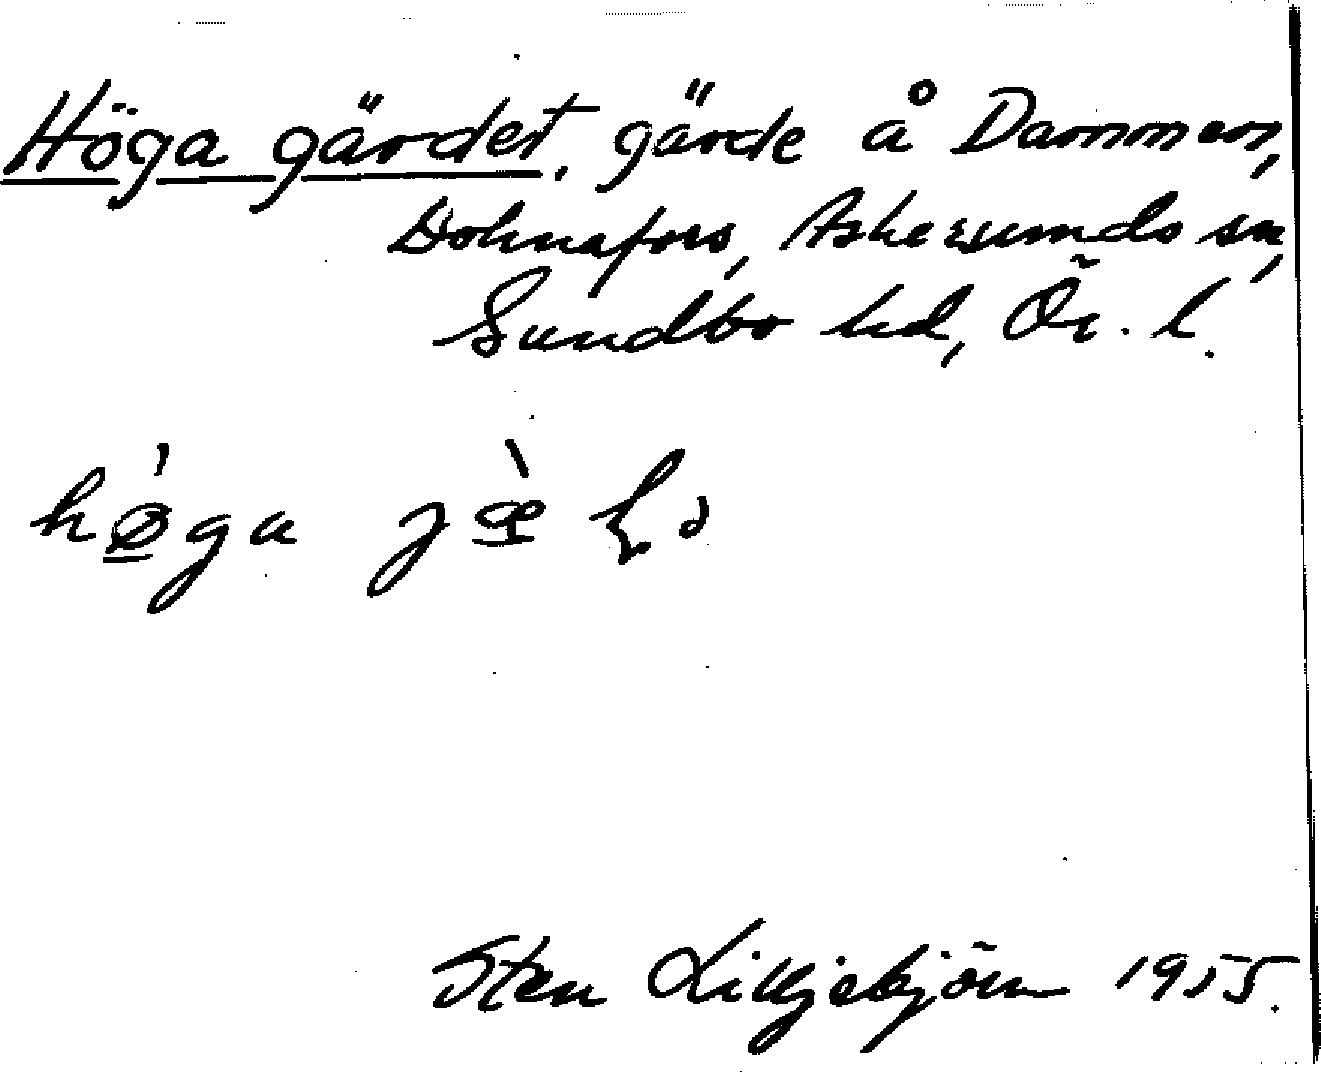 Höga gärdet, gärde å Dammen,
Dohnafors, Askersunds sn,
Sundbo hd, Ör. l.
Sten Lilljebjörn 1955.